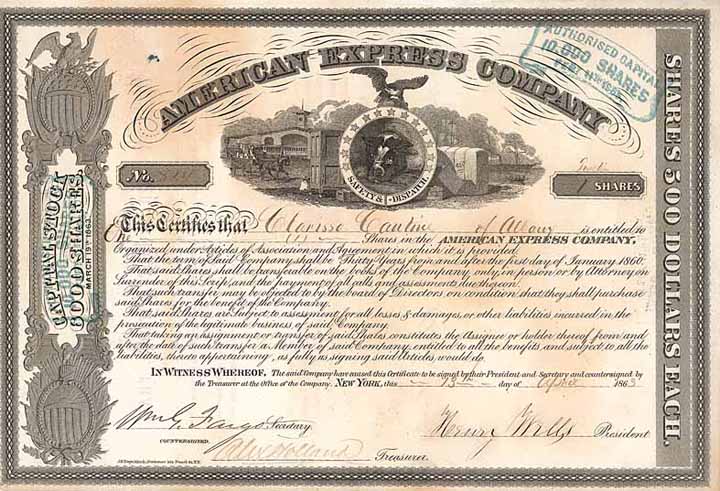 AMERICAN EXPRESS COMPANY
AUTHORISED CAPITAL
10.000 SHARES
No.
SAFETY & DISPATCH
1 SHARES
CAPITAL STOCK
6000 SHARES
MARCH 13th 1863
SHARES 500 DOLLARS EACH.
This Certifies that Clarisse of Albany is entitled to
One Shares in the AMERICAN EXPRESS COMPANY,
Organized under Articles of Association and Agreement in which it is provided.
That the term of Said Company shall be Thirty Years from and after the first day of January 1860.
That said Shares shall be transferable on the books of the Company only, in person or by Attorney on
Surrender of this Scrip, and the payment of all calls and assessments due thereon.
That such transfer may be objected to by the board of Directors on condition that they shall purchase
said Shares for the benefit of the Company.
That said Shares are Subject to assessment for all losses & damages, or other liabilities incurred in the
prosecution of the legitimate business of said Company.
That taking an assignment or transfer of said Shares, constitutes the Assignee or holder thereof from and
after the date of such transfer a Member of said Company, entitled to all the benefits, and subject to all the
liabilities, thereto appertaining, as fully as signing said Articles would do.
IN WITNESS WHEREOF. The said Company have caused this Certificate to be signed by their President and Secretary and countersigned by
the Treasurer at the Office of the Company. NEW YORK, this 13th day of April 1863
Wm G. Fargo Secretary.
Henry Wells President
COUNTERSIGNED.
Alex Holland Treasurer.